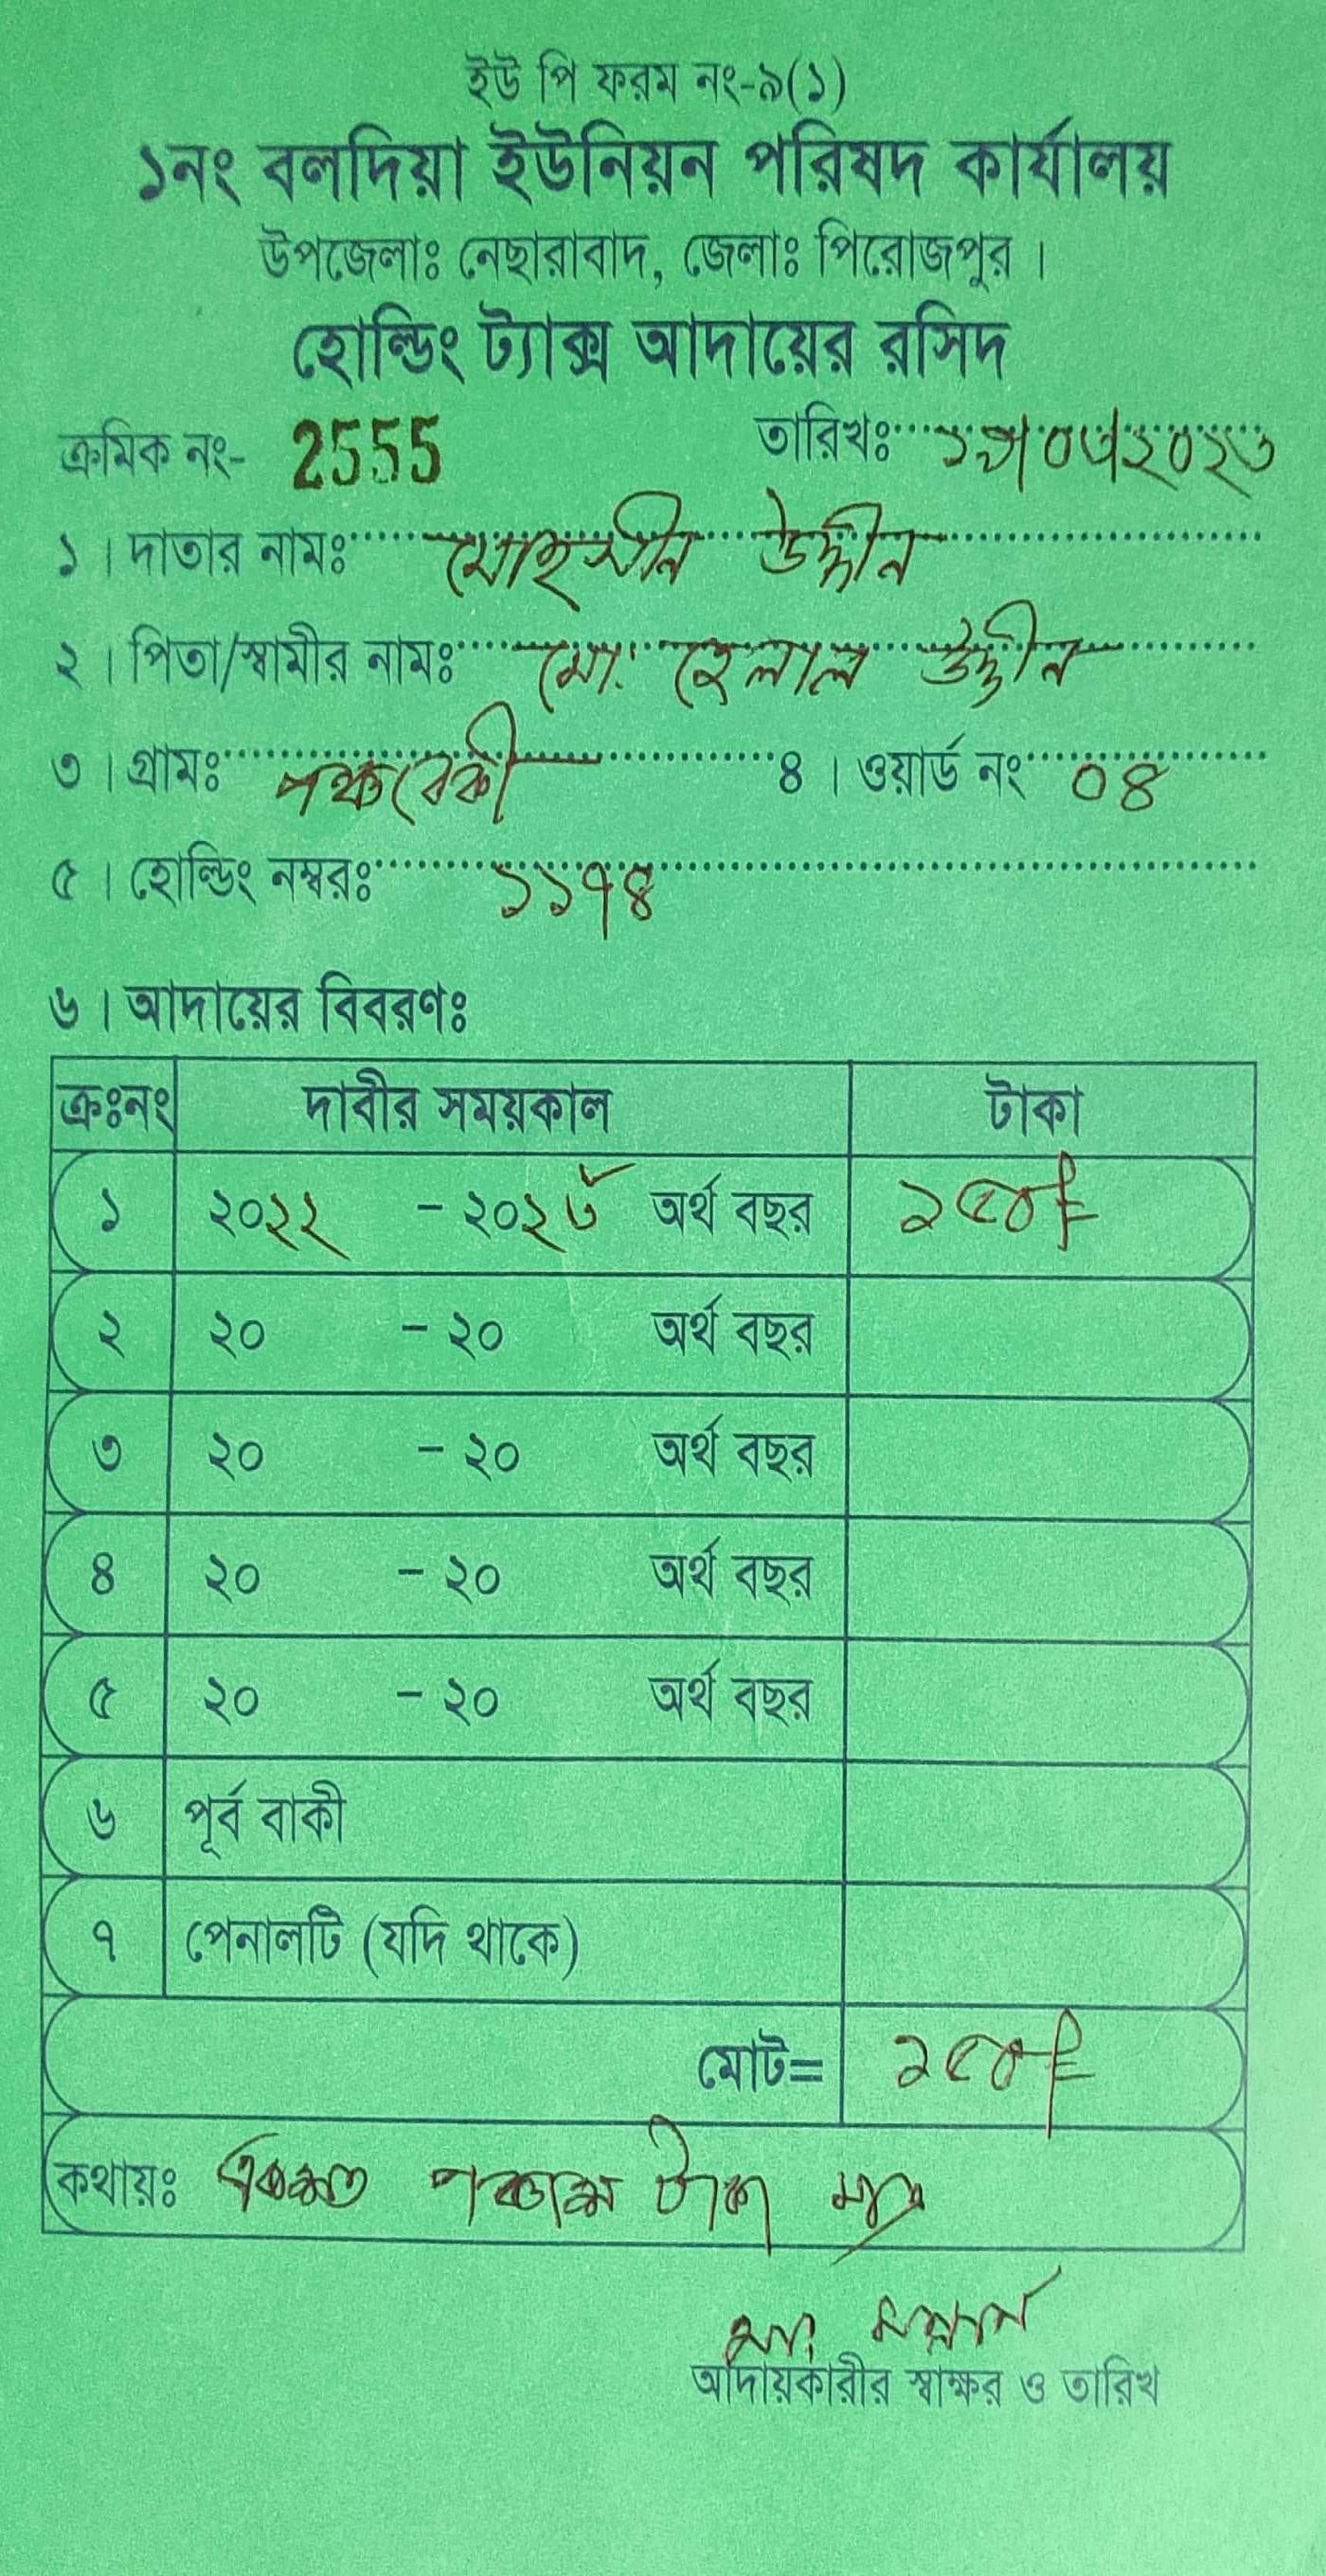 ইউ পি ফরম নং-৯(১)
১নং বলদিয়া ইউনিয়ন পরিষদ কার্যালয়
উপজেলাঃ নেছারাবাদ, জেলাঃ পিরোজপুর।
হোল্ডিং ট্যাক্স আদায়ের রসিদ
ক্রমিক নং- 2555 তারিখঃ
১। দাতার নামঃ মোহসীন উদ্দীন
২। পিতা/স্বামীর নামঃ মো: হেলাল উদ্দীন
৩। গ্রামঃ পঞ্চবেকী ৪। ওয়ার্ড নং ০৪
৫। হোল্ডিং নম্বরঃ ১১৭৪
৬। আদায়ের বিবরণঃ
ক্রঃনং দাবীর সময়কাল টাকা
১ ২০২২ - ২০২৩ অর্থ বছর ১৫০৳
২ ২০ - ২০ অর্থ বছর
৩ ২০ - ২০ অর্থ বছর
৪ ২০ - ২০ অর্থ বছর
৫ ২০ - ২০ অর্থ বছর
৬ পূর্ব বাকী
৭ পেনালটি (যদি থাকে)
মোট= ১৫০৳
কথায়ঃ একশত পঞ্চাশ টাকা মাত্র
আদায়কারীর স্বাক্ষর ও তারিখ